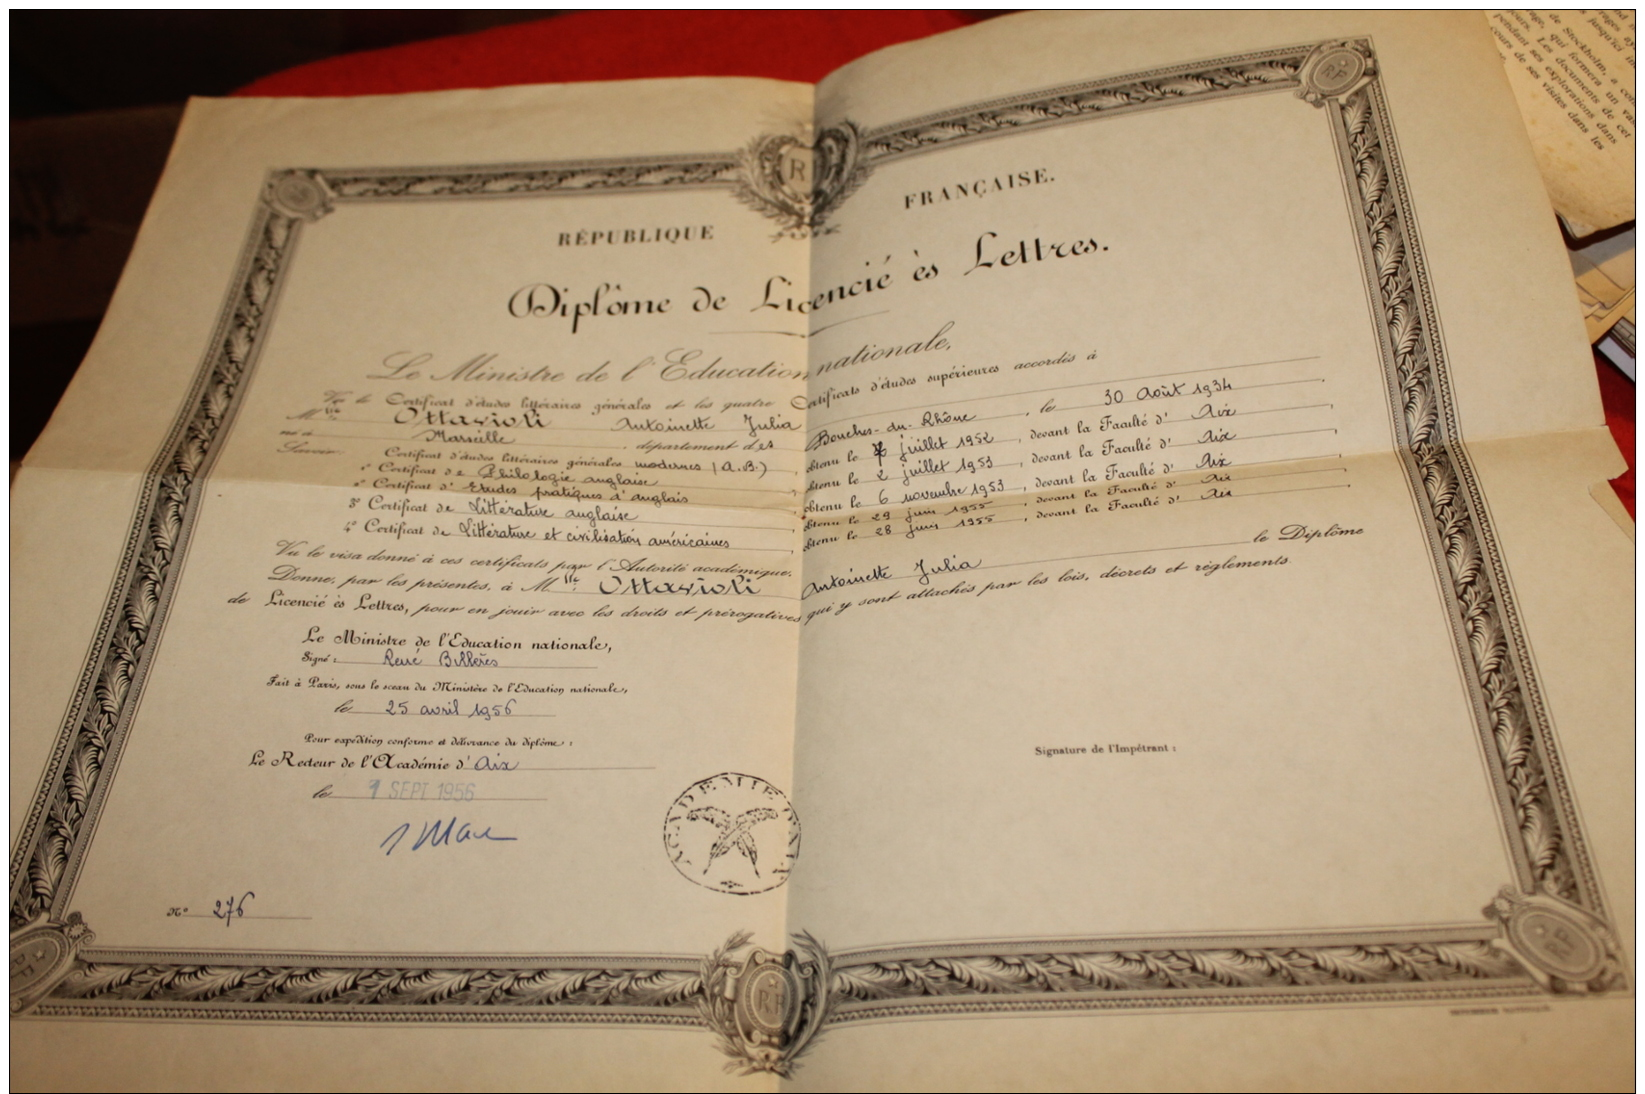 RÉPUBLIQUE FRANÇAISE.
Diplôme de Licencié ès Lettres.
Le Ministre de l'Education nationale,
Vu le Certificat d'études littéraires générales et les quatre Certificats d'études supérieures accordés à
Mlle Ottavioli Antoinette Julia
né à Marseille, département des Bouches-du-Rhône, le 30 Août 1934
Savoir:
Certificat d'études littéraires générales modernes (A.B.), obtenu le 7 juillet 1952, devant la Faculté d'Aix
1º Certificat de Philologie anglaise, obtenu le 2 juillet 1953, devant la Faculté d'Aix
2º Certificat d'Etudes pratiques d'anglais, obtenu le 6 novembre 1953, devant la Faculté d'Aix
3º Certificat de Littérature anglaise, obtenu le 29 juin 1955, devant la Faculté d'Aix
4º Certificat de Littérature et civilisation américaines, obtenu le 28 juin 1955, devant la Faculté d'Aix
Vu le visa donné à ces certificats par l'Autorité académique,
Donne, par les présentes, à Mlle Ottavioli Antoinette Julia le Diplôme
de Licencié ès Lettres, pour en jouir avec les droits et prérogatives qui y sont attachés par les lois, décrets et règlements.
Le Ministre de l'Education nationale,
Signé: René Billères
Fait à Paris, sous le sceau du Ministère de l'Education nationale,
le 25 avril 1956
Pour expédition conforme et délivrance du diplôme:
Le Recteur de l'Académie d'Aix
le 1 SEPT 1956
Signature de l'Impétrant :
ACADEMIE D'AIX
Nº 276
RF
RF
RF
RF